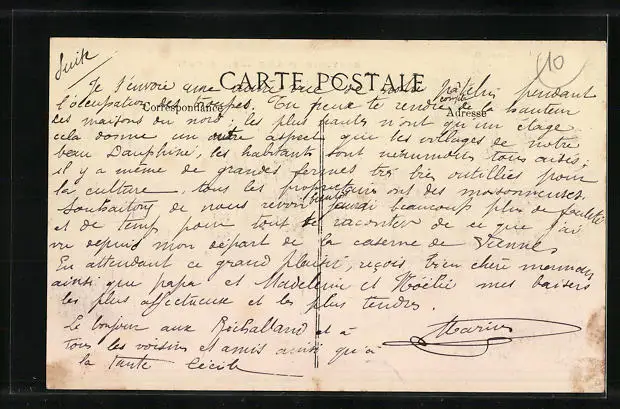 Suite
10
CARTE POSTALE
Correspondance
Adresse
Je t'envoie une autre vue de notre pendant
l'occupation des troupes. Tu peux te rendre compte de la hauteur
des maisons du nord ; les plus hautes n'ont qu'un étage
cela donne un autre aspect que les villages de notre
beau Dauphiné, les habitants sont néanmoins tous aisés ;
il y a même de grandes fermes très très outillées pour
la culture, tous les propriétaires ont des moissonneuses.
Souhaitons de nous revoir bientôt j'aurai beaucoup plus de facilité
et de temps pour tout te raconter de ce que j'ai
vu depuis mon départ de la caserne de Vienne,
En attendant ce grand plaisir, reçois bien chère maman
ainsi que papa et Madeleine et Noélie mes baisers
les plus affectueux et les plus tendres.
Le bonjour aux et à
tous les voisins et amis ainsi qu'à
la tante Cécile
Marius